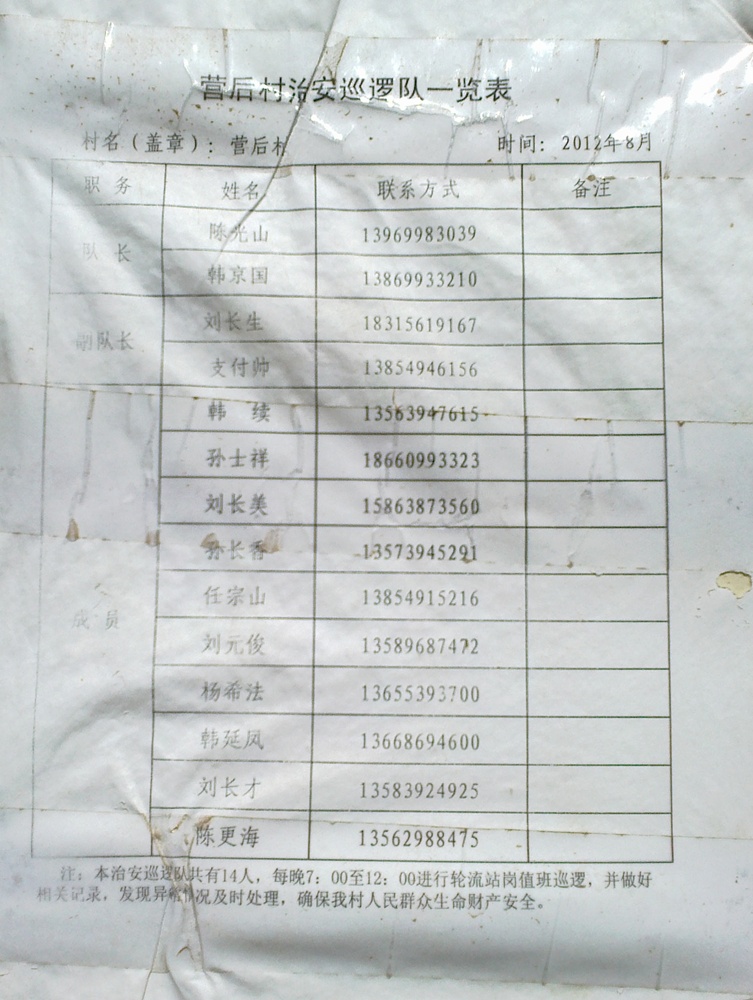 营后村治安巡逻队一览表
村名（盖章）：营后村 时间：2012年8月
职 务 姓名 联系方式 备注
队 长 陈光山 13969983039
韩京国 13869933210
副队长 刘长生 18315619167
支付帅 13854946156
成 员 韩 续 13563947615
孙士祥 18660993323
刘长美 15863873560
孙长香 13573945291
任宗山 13854915216
刘元俊 13589687472
杨希法 13655393700
韩延凤 13668694600
刘长才 13583924925
陈更海 13562988475
注：本治安巡逻队共有14人，每晚7：00至12：00进行轮流站岗值班巡逻，并做好
相关记录，发现异常情况及时处理，确保我村人民群众生命财产安全。